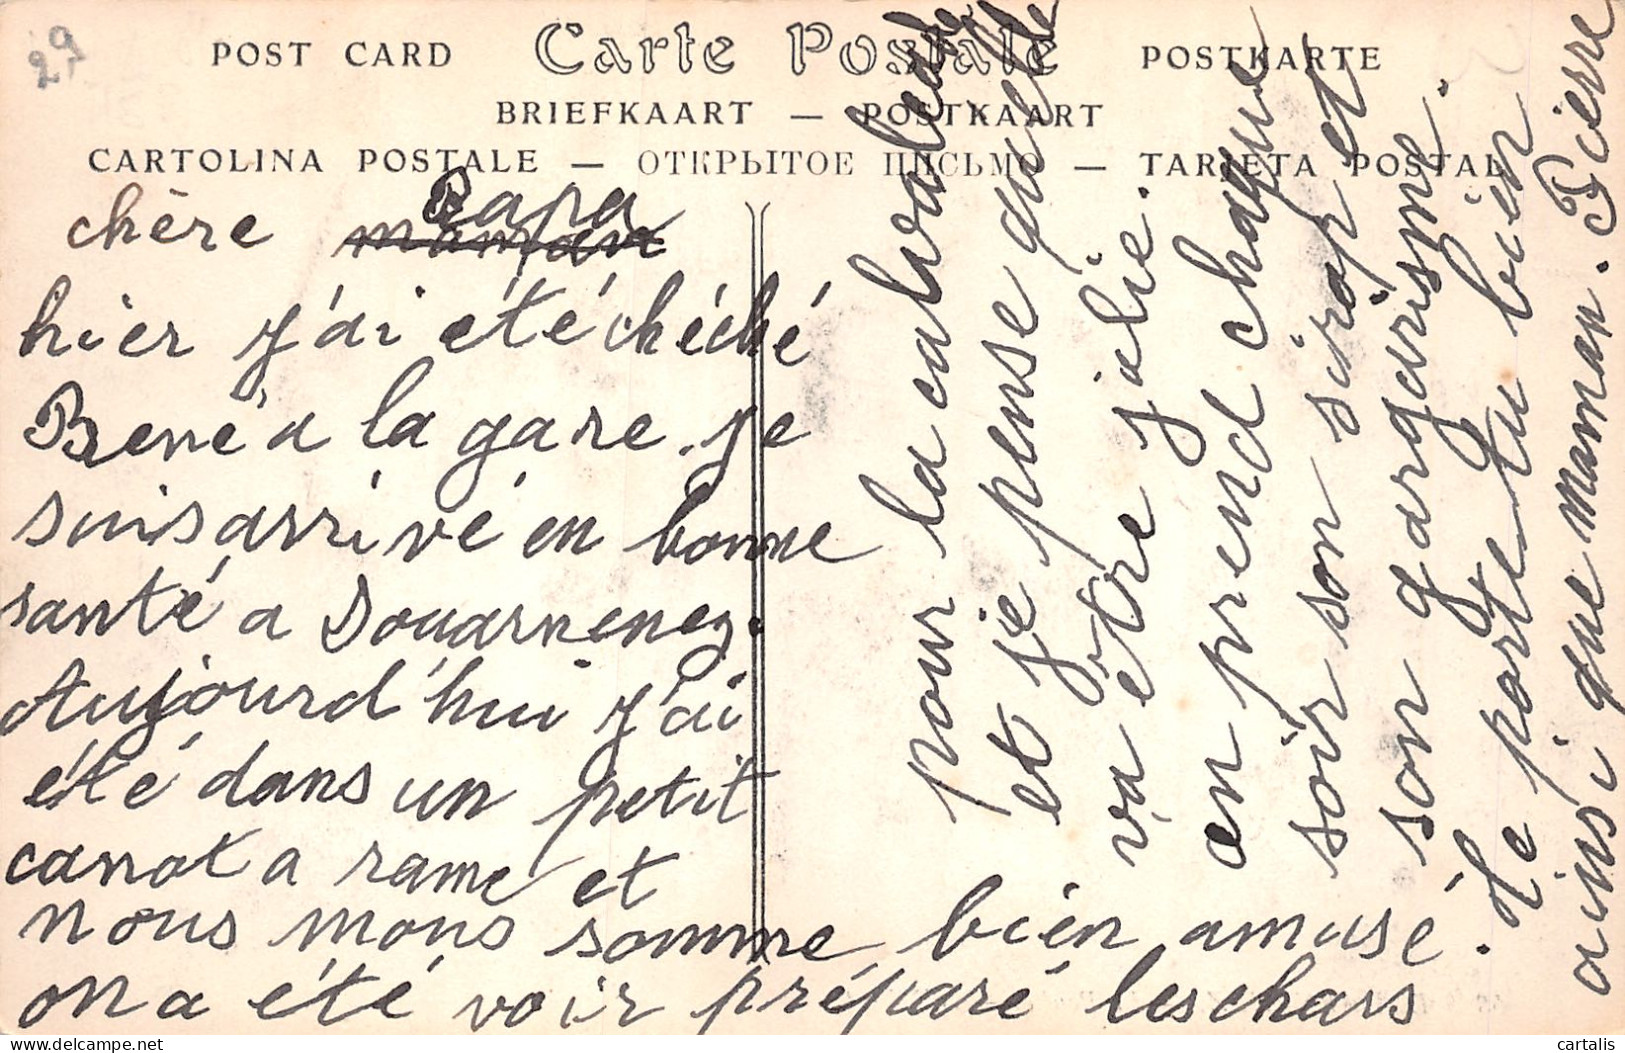 29
POST CARD Carte Postale POSTKARTE
BRIEFKAART — POSTKAART
CARTOLINA POSTALE — ОТКРЫТОЕ ПИСЬМО — TARJETA POSTAL
chère maman Papa
hier j'ai été chéché
René a la gare. je
suis arrivé en bonne
santé a Douarnenez.
Aujourd'hui j'ai
été dans un petit
canot a rame et
nous mous somme bien amusé.
on a été voir préparé les chars
pour la cavalcade
et je pense quelle
va être jolie.
en prend chaque
soir son sirop et
son gargarisme.
Je porte tu bien
ainsi que maman. Pierre
cartalis